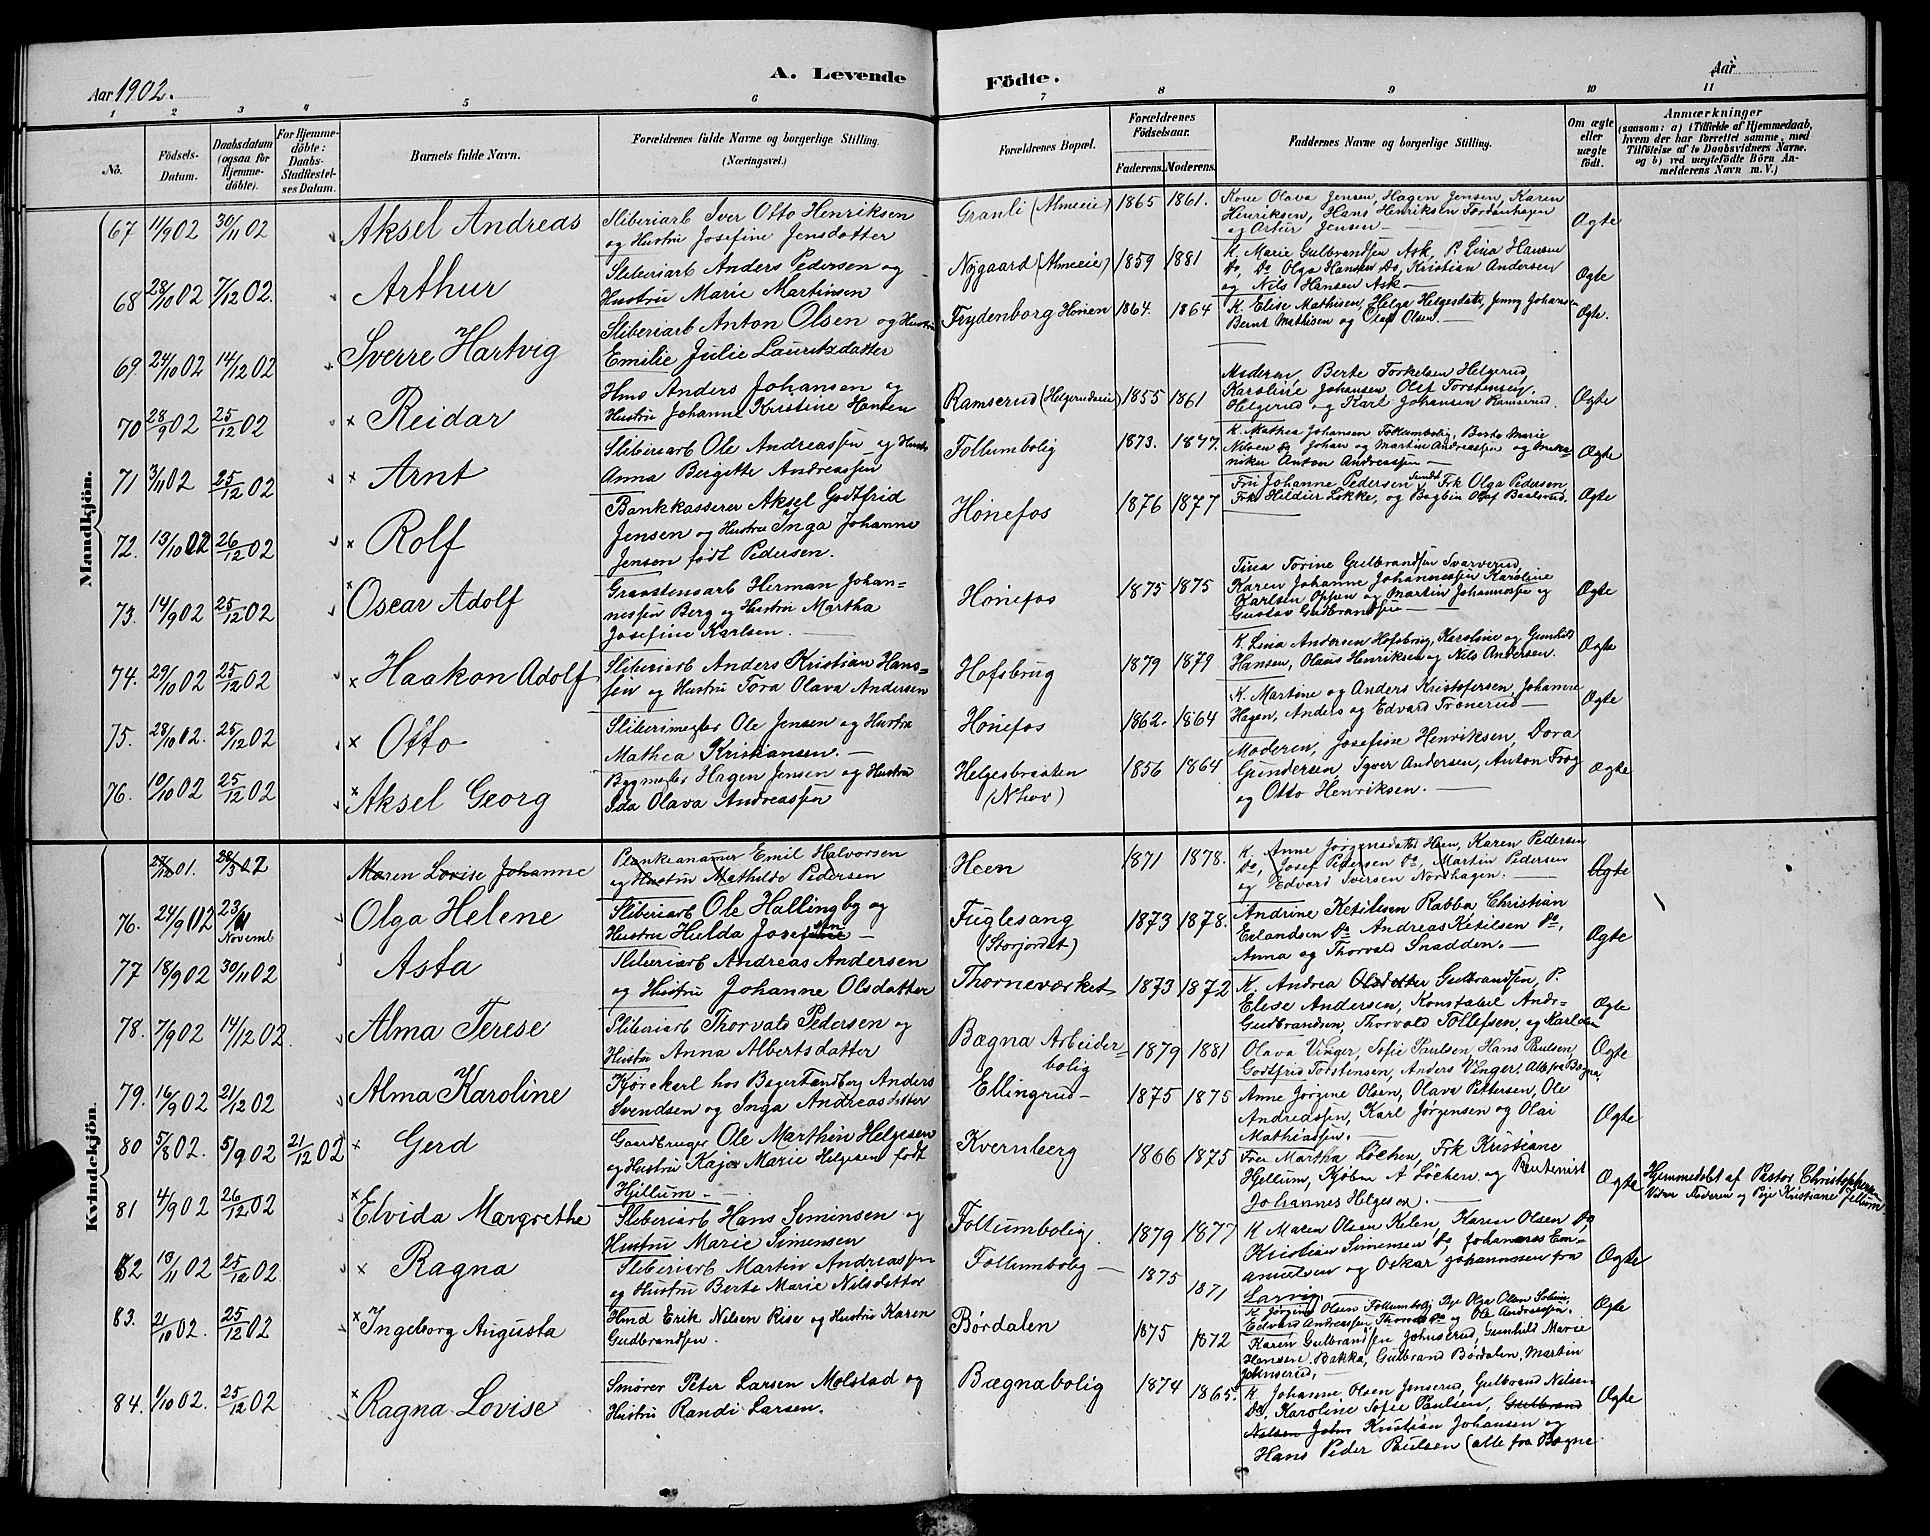 Aar 1902.
A. Levende
Födte.
Aar
1 2 3 4 5 6 7 8 9 10 11
No.
Födsels-Datum.
Daabsdatum (ogsaa for Hjemmedöbte).
For Hjemmedöbte: Daabs-Stadfæstelses Datum.
Barnets fulde Navn.
Forældrenes fulde Navne og borgerlige Stilling.
(Næringsvei.)
Forældrenes Bopæl.
Forældrenes Födselsaar.
Faderens. Moderens.
Faddernes Navne og borgerlige Stilling.
Om ægte eller uægte födt.
Anmærkninger
(saasom: a) i Tilfælde af Hjemmedaab,
hvem der har forrettet samme, med
Tilföielse af to Daabsvidners Navne.
og b) ved uægtefödte Börn An-
melderens Navn m. V.)
Mandkjön.
67 11/9 02 30/11 02 Aksel Andreas
Sliberiarb Iver Otto Henriksen
og Hustru Josefine Jensdatter
Granli (Almeie) 1865 1861.
Kone Olava Jensen, Hagen Jensen, Karen
Henriksen, Hans Henriksen
og Artur Jensen
Ægte
68 28/10 02 7/12 02. Arthur
Sliberiarb Anders Pedersen og
Hustru Marie Martinsen
Nygaard (Almeie) 1859 1881
K. Marie Gulbrandsen Ask, P. Lina Hansen
Do, Do Olga Hansen Do, Kristian Andersen
og Nils Hansen Ask
Ægte
69. 24/10 02 14/12 02 Sverre Hartvig
Sliberiarb Anton Olsen og Hustru
Emilie Julie Lauritzdatter
Frydenborg Hønen 1864. 1864
K. Elise Mathisen, Helga Helgesdatr, Jenny Johansen
Bernt Mathisen og Olaf Olsen.
Ægte.
70 28/9 02 25/12 02 × Reidar
Hmd Anders Johansen og
Hustru Johanne Kristine Hansen
Ramserud (Helgerudeie) 1855 1861
Moderen, Berte Torkelsen Helgerud,
Karoline Johansen, Olef Torstensen,
Helgerud og Karl Johansen Ramserud.
Ægte
71 3/11 02 25/12 02 × Arnt
Sliberiarb Ole Andreassen og Hustru
Anna Bergitte Andreassen
Follumbolig 1873. 1877.
K. Mathea Johansen, Follumbolig, Berte Marie
Nilsen Do Johan og Martin Andreassen og meka-
niker Anton Andreassen
Ægte
72. 13/10 02 26/12 02 × Rolf
Bankkasserer Aksel Godtfrid
Jensen og Hustru Inga Johanne
Jensen født Pedersen.
Hønefos 1876 1877
Fru Johanne Pedersen Frk Olga Pedersen,
Frk Hildur Løkke, og Olaf
Ægte
73. 14/9 02 25/12 02 × Oscar Adolf
Graastensarb Herman Johan-
nessen Berg og Hustru Martha
Josefine Karlsen.
Hønefos 1875 1875
Tina Torine Gulbrandsen Svarverud,
Karen Johanne Johannessen Karoline
Karlsen Opsen og Martin Johannesse og
Gustav Gudbrandsen
Ægte
74. 29/10 02 25/12 02 × Haakon Adolf
Sliberiarb Anders Kristian Hans-
sen og Hustru Tora Olava Andersen
Hofsbrug 1879 1879
K. Lina Andersen Hofsbrug, Karoline og Gunhild
Hansen, Olaus Henriksen og Nils Andersen.
Ægte
75. 28/10 02. 25/12 02 × Otto
Sliberimester Ole Jensen og Hustru
Mathea Kristiansen.
Hønefos 1862. 1864
K. Martine og Anders Kristofersen, Johanne
Hagen, Anders og Edvard Tronerud
Ægte
76. 10/10 02 25/12 02 × Aksel Georg
Bygmester Hagen Jensen og Hustru
Ida Olava Andreassen
Helgesbraaten
(Nhov) 1856 1864
Moderen, Josefine Henriksen, Dora
Gundersen, Iver Andersen, Anton Frog
og Otto Henriksen.
Ægte
Kvindekjön.
27/12 01. 28/3 02 Maren Lovise Johanne
Plankeanamer Emil Halvorsen
og Hustru Mathilde Pedersen
Heen 1871 1878.
K. Anne Jørgensdatter Heen, Karen Pedersen
Do, Josef Pedersen Do, Martin Pedersen
og Edvard Iversen Nordhagen.
Ægte
76. 24/9 02 23/11 Novemb Olga Helene
Sliberiarb Ole Hallingby og
Hustru Hulda Josefsen
Fuglesang
(Storjordet) 1873 1878.
Andrine Ketilsen Rabba Christian
Erlandsen Do Andreas Ketilsen Do,
Anna og Thorvald Snadden.
Ægte
77 18/9 02 30/11 02 Asta
Sliberiarb Andreas Andersen
og Hustru Johanne Olsdatter
Thorneværket 1873 1872
K. Andrea Olsdatter Gulbrandsen, P.
Elise Andersen, Konstabel Andr-
Gudbrandsen, Thorvald Tollefsen, og Karlsen
Ægte
78. 7/9 02 14/12 02. Alma Terese
Sliberiarb Thorvald Pedersen og
Hustru Anna Albertsdatter
Bægna Arbeider-
bolig 1879 1881
Olava Vinger, Sofie Paulsen, Hans Paulsen,
Godtfrid Torstensen, Anders Vinger, Alle fra Bægna.
Ægte
79. 16/9 02 21/12 02 Alma Karoline
Kjørekarl hos Bager Tandberg Anders
Svendsen og Inga Andreasdatter
Ellingrud 1875 1875
Anne Jørgine Olsen, Olava Pettersen, Ole
Andreassen, Karl Jørgensen og Olai
Mathiassen.
Ægte
80 5/8 02. 5/9 02 21/12 02 × Gerd
Gaardbruger Ole Marthin Helgesen
og Hustru Kaja Marie Helgesen født
Hjellum.
Kvernberg 1866 1875
Fru Martha Løchen, Frk Kristiane
Hjellum, Kjøbm A Løchen og
Johannes Helgesen.
Ægte
Hjemmedøbt af Pastor Christophersen
Vidner Faderen og Pige Kristiane Jellum.
81 4/9 02 26/12 02 × Elvida Margrethe
Sliberiarb Hans Simensen og
Hustru Marie Simensen
Follumbolig. 1879 1877
K Maren Olsen Kelen, Karen Olsen Do,
Kristian Simensen Do Johannes Em-
anuelsen og Oskar Johannesen fra
Larvig.
Ægte
82 13/11 02 25/12 02 × Ragna
Sliberiarb Martin Andreassen
og Hustru Berte Marie Nilsdatter
Follumbolig 1875 1871
K Jørgine Olsen Follumbolig Pige Olga Olsen
Edvard Andreassen Do og Ole Andreassen.
Ægte
83. 21/10 02. 25/12 02 × Ingeborg Augusta
Hmd Erik Nilsen Rise og Hustru Karen
Gudbrandsen.
Børdalen 1875 1872
Karen Gulbrandsen Johnserud, Gunhild Marie
Hansen Bakka, Gulbrand Børdalen, Martin
Johnserud,
84. 1/10 02. 25/12 02 × Ragna Lovise
Smører Peter Larsen Molstad og
Hustru Randi Larsen.
Bægnabolig 1874 1865.
K. Johanne Olsen Jenserud, Gulbrand Nilsen
Do. Karoline Sofie Paulsen, Gulbrand
Nilsen John Kristian Johansen og
Hans Peder Paulsen (alle fra Bægna
Ægte